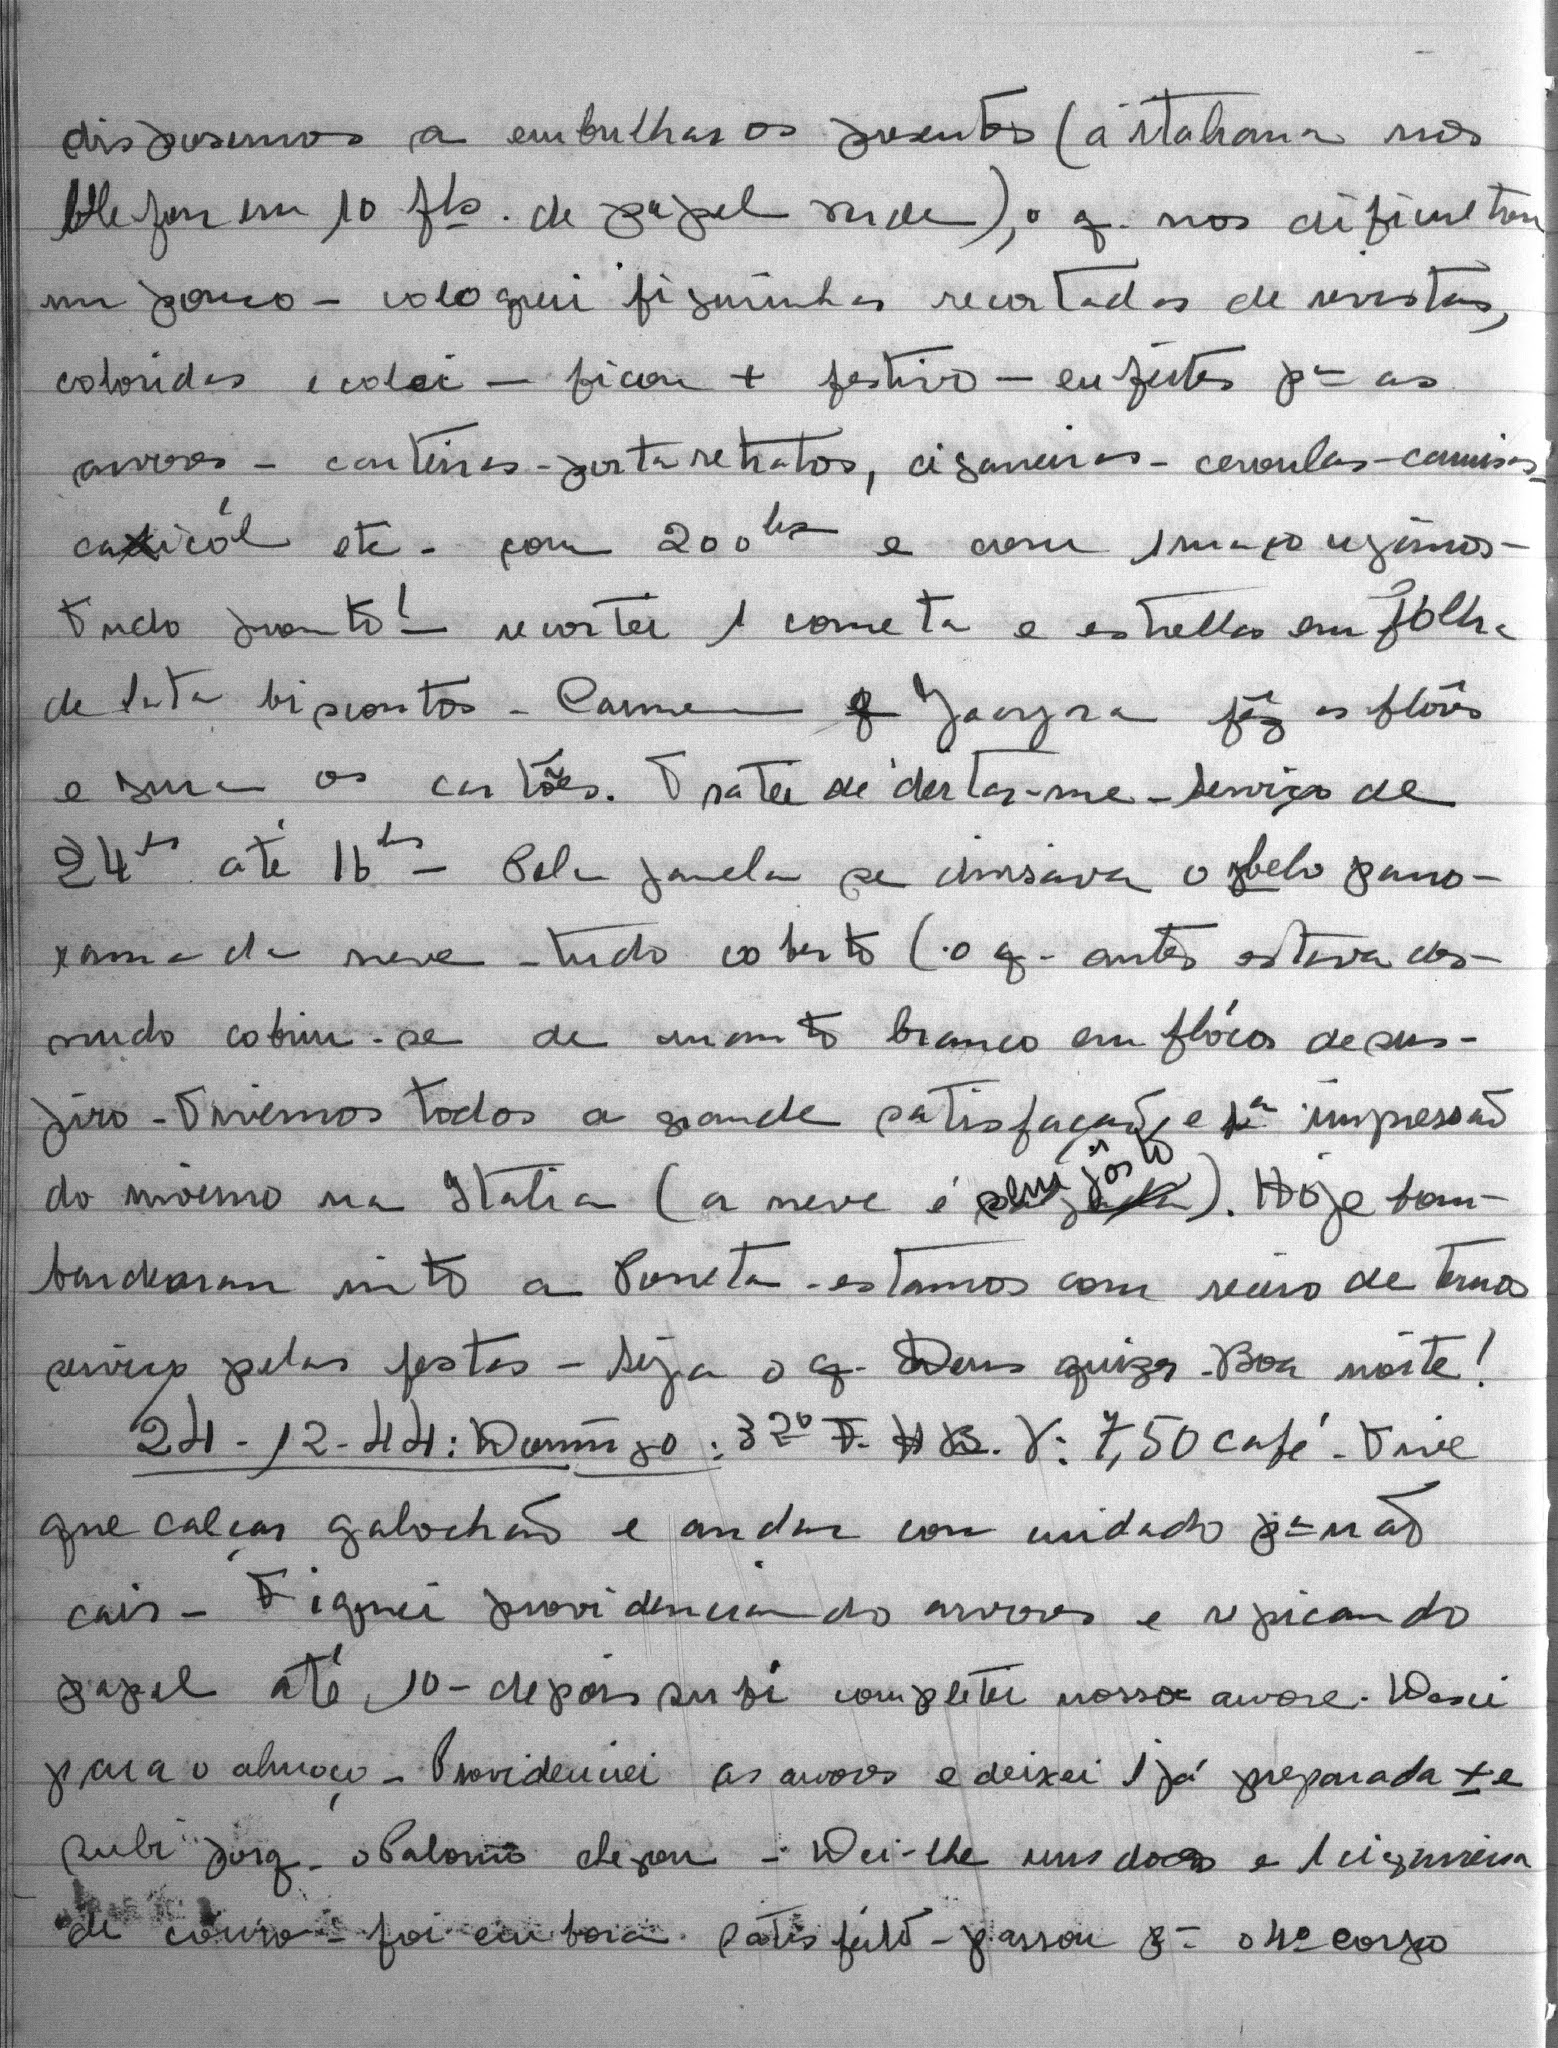 dispusemos a embrulhar os presentes (a italiana nos
blefou em 10 fls. de papel rude), o q. nos dificultou
um pouco - coloquei figurinhas recortadas de revistas,
coloridas e colei - ficou + festivo - enfeites pª as
arvores - carteiras - porta retratos, cigarreiras - ceroulas - camisas
cachicól etc - com 200 e com 1 maço
Tudo pronto! recortei 1 cometa e estrellas em fôlha
de lata biscoutos - Carmen Jacyra fêz as flôres
e os cartões. Tratei de deitar-me - serviço de
24hs até 16hs - Pela janela se divisava o belo pano-
rama da neve - tudo coberto (o q. antes estava des-
nudo cobriu-se de manto branco em flócos de sus-
piro - Tivemos todos a grande satisfação e 1ª impressão
do inverno na Italia (a neve é). Hoje bom-
bardearam mto a Poreta - estamos com receio de termos
serviço pelas festas - Seja o q. Deus quizer - Boa noite!
24-12-44: Domingo: 32º F. H B. V: 7,50 café - Tive
que calçar galochão e andar com cuidado pª não
cair - Fiquei providenciando arvores e repicando
papel até 10 - depois subi completei nossa arvore. Desci
para o almoço - Providenciei as arvores e deixei 1 já preparada + e
subi porq. o Palomo chegou - Dei-lhe uns doces e 1 cigarreira
de couro - foi embora satisfeito - passou pª o 4º corpo